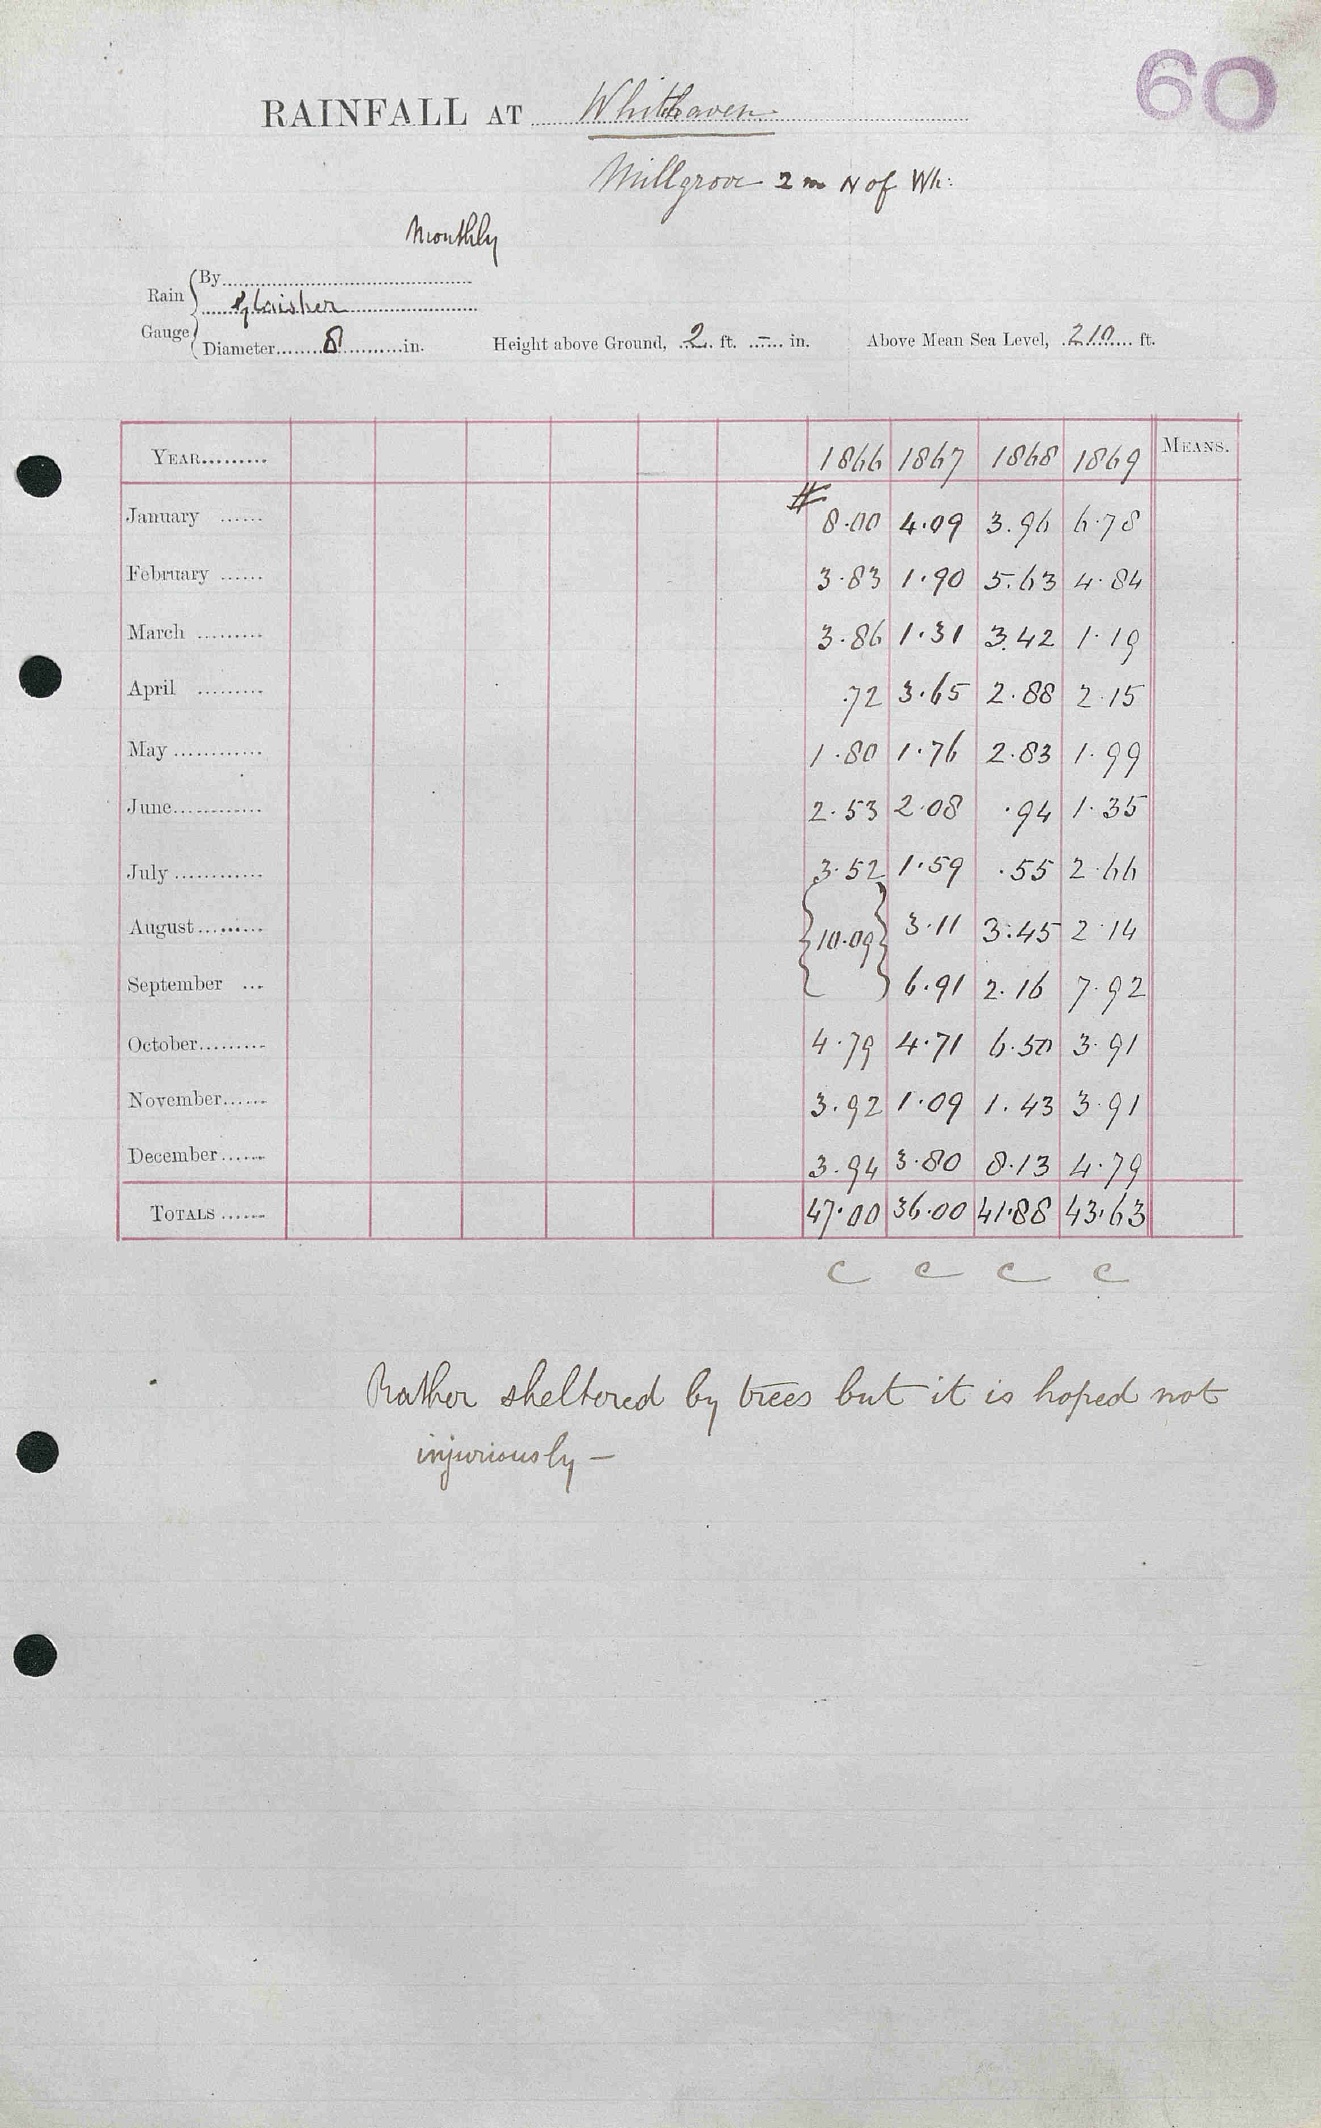 60
RAINFALL AT Whitehaven
Millgrove 2 m N of Wh:
Monthly
Rain Gauge
By
Glaisher
Diameter 8 in. Height above Ground, 2 ft. – in. Above Mean Sea Level, 210 ft.
YEAR 1866 1867 1868 1869 MEANS.
January # 8.00 4.09 3.96 6.78
February 3.83 1.90 5.63 4.84
March 3.86 1.31 3.42 1.19
April .72 3.65 2.88 2.15
May 1.80 1.76 2.83 1.99
June 2.53 2.08 .94 1.35
July 3.52 1.59 .55 2.66
August {10.09} 3.11 3.45 2.14
September 6.91 2.16 7.92
October 4.79 4.71 6.50 3.91
November 3.92 1.09 1.43 3.91
December 3.94 3.80 8.13 4.79
TOTALS 47.00 36.00 41.88 43.63
C C C C
Rather sheltered by trees but it is hoped not
injuriously –